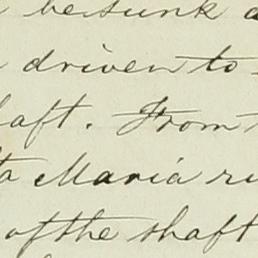 be sunk a
driven to
haft. From
ta Maria ru
of the shaft